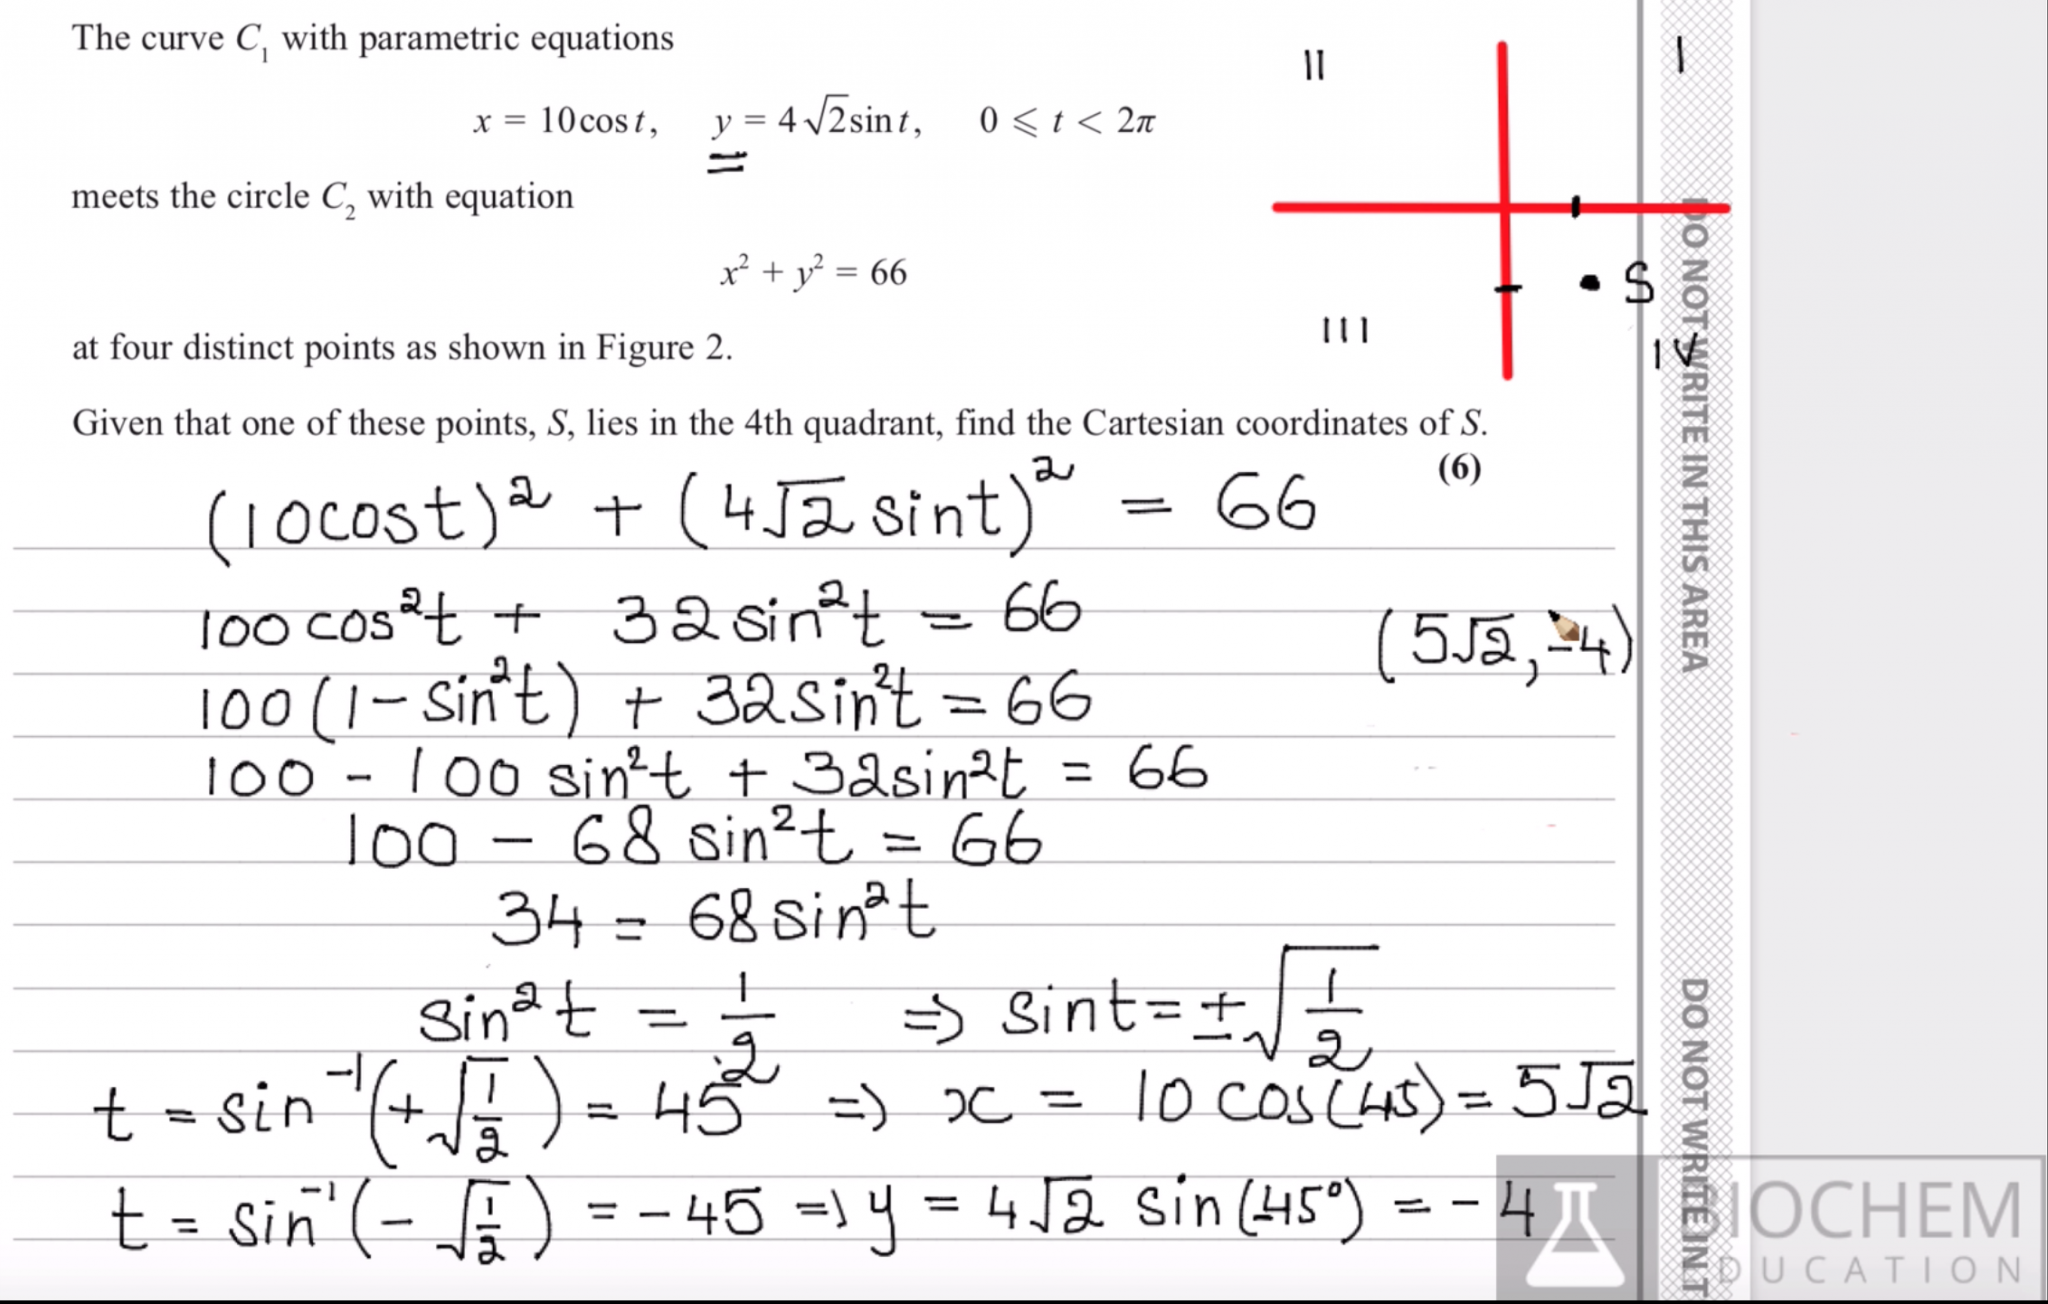 The curve C₁ with parametric equations
x = 10cost, y = 4√2sint, 0 ⩽ t < 2π
meets the circle C₂ with equation
x² + y² = 66
at four distinct points as shown in Figure 2.
Given that one of these points, S, lies in the 4th quadrant, find the Cartesian coordinates of S.
(6)
II
I
S
III
IV
(10cost)² + (4√2 sint)² = 66
100cos²t + 32sin²t = 66
(5√2, -4)
100(1-sin²t) + 32sin²t = 66
100 - 100 sin²t + 32sin²t = 66
100 - 68 sin²t = 66
34 = 68sin²t
sin²t = 1/2 => sint = ±√(1/2)
t = sin⁻¹(+√(1/2)) = 45 => x = 10 cos(45) = 5√2
t = sin⁻¹(-√(1/2)) = -45 => y = 4√2 sin(-45°) = -4
DO NOT WRITE IN THIS AREA
DO NOT WRITE IN T
BIOCHEM
EDUCATION